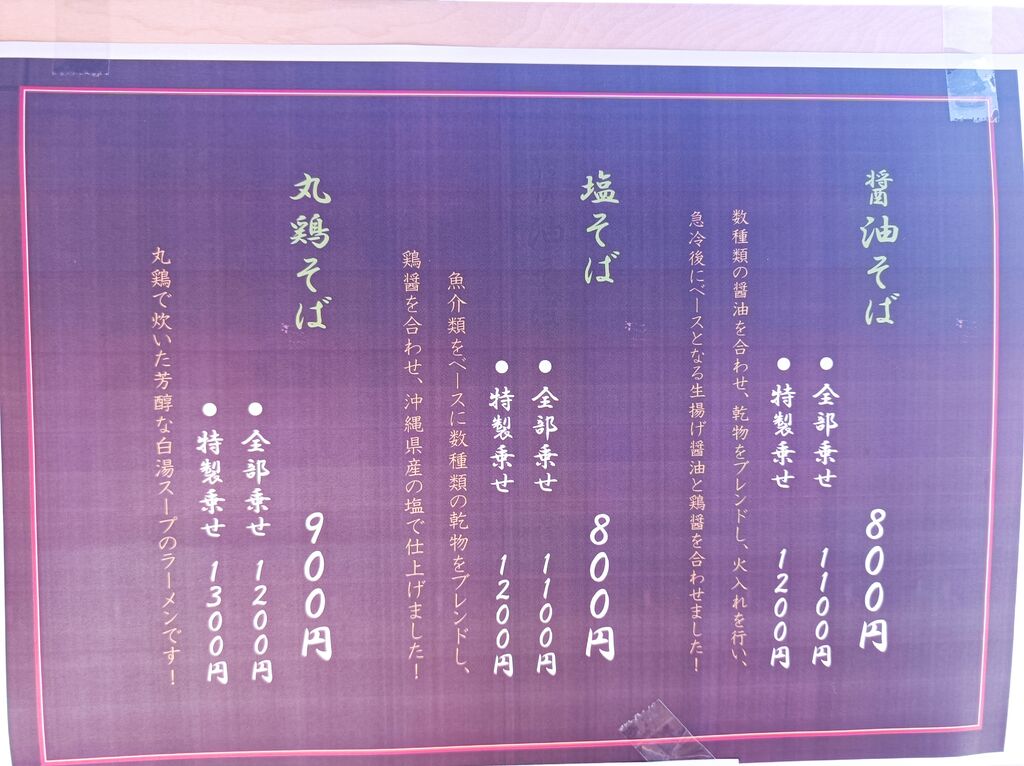 醤油そば 800円
●全部乗せ 1100円
●特製乗せ 1200円
数種類の醤油を合わせ、乾物をブレンドし、火入れを行い、
急冷後にベースとなる生揚げ醤油と鶏醤を合わせました！
塩そば 800円
●全部乗せ 1100円
●特製乗せ 1200円
魚介類をベースに数種類の乾物をブレンドし、
鶏醤を合わせ、沖縄県産の塩で仕上げました！
丸鶏そば 900円
●全部乗せ 1200円
●特製乗せ 1300円
丸鶏で炊いた芳醇な白湯スープのラーメンです！